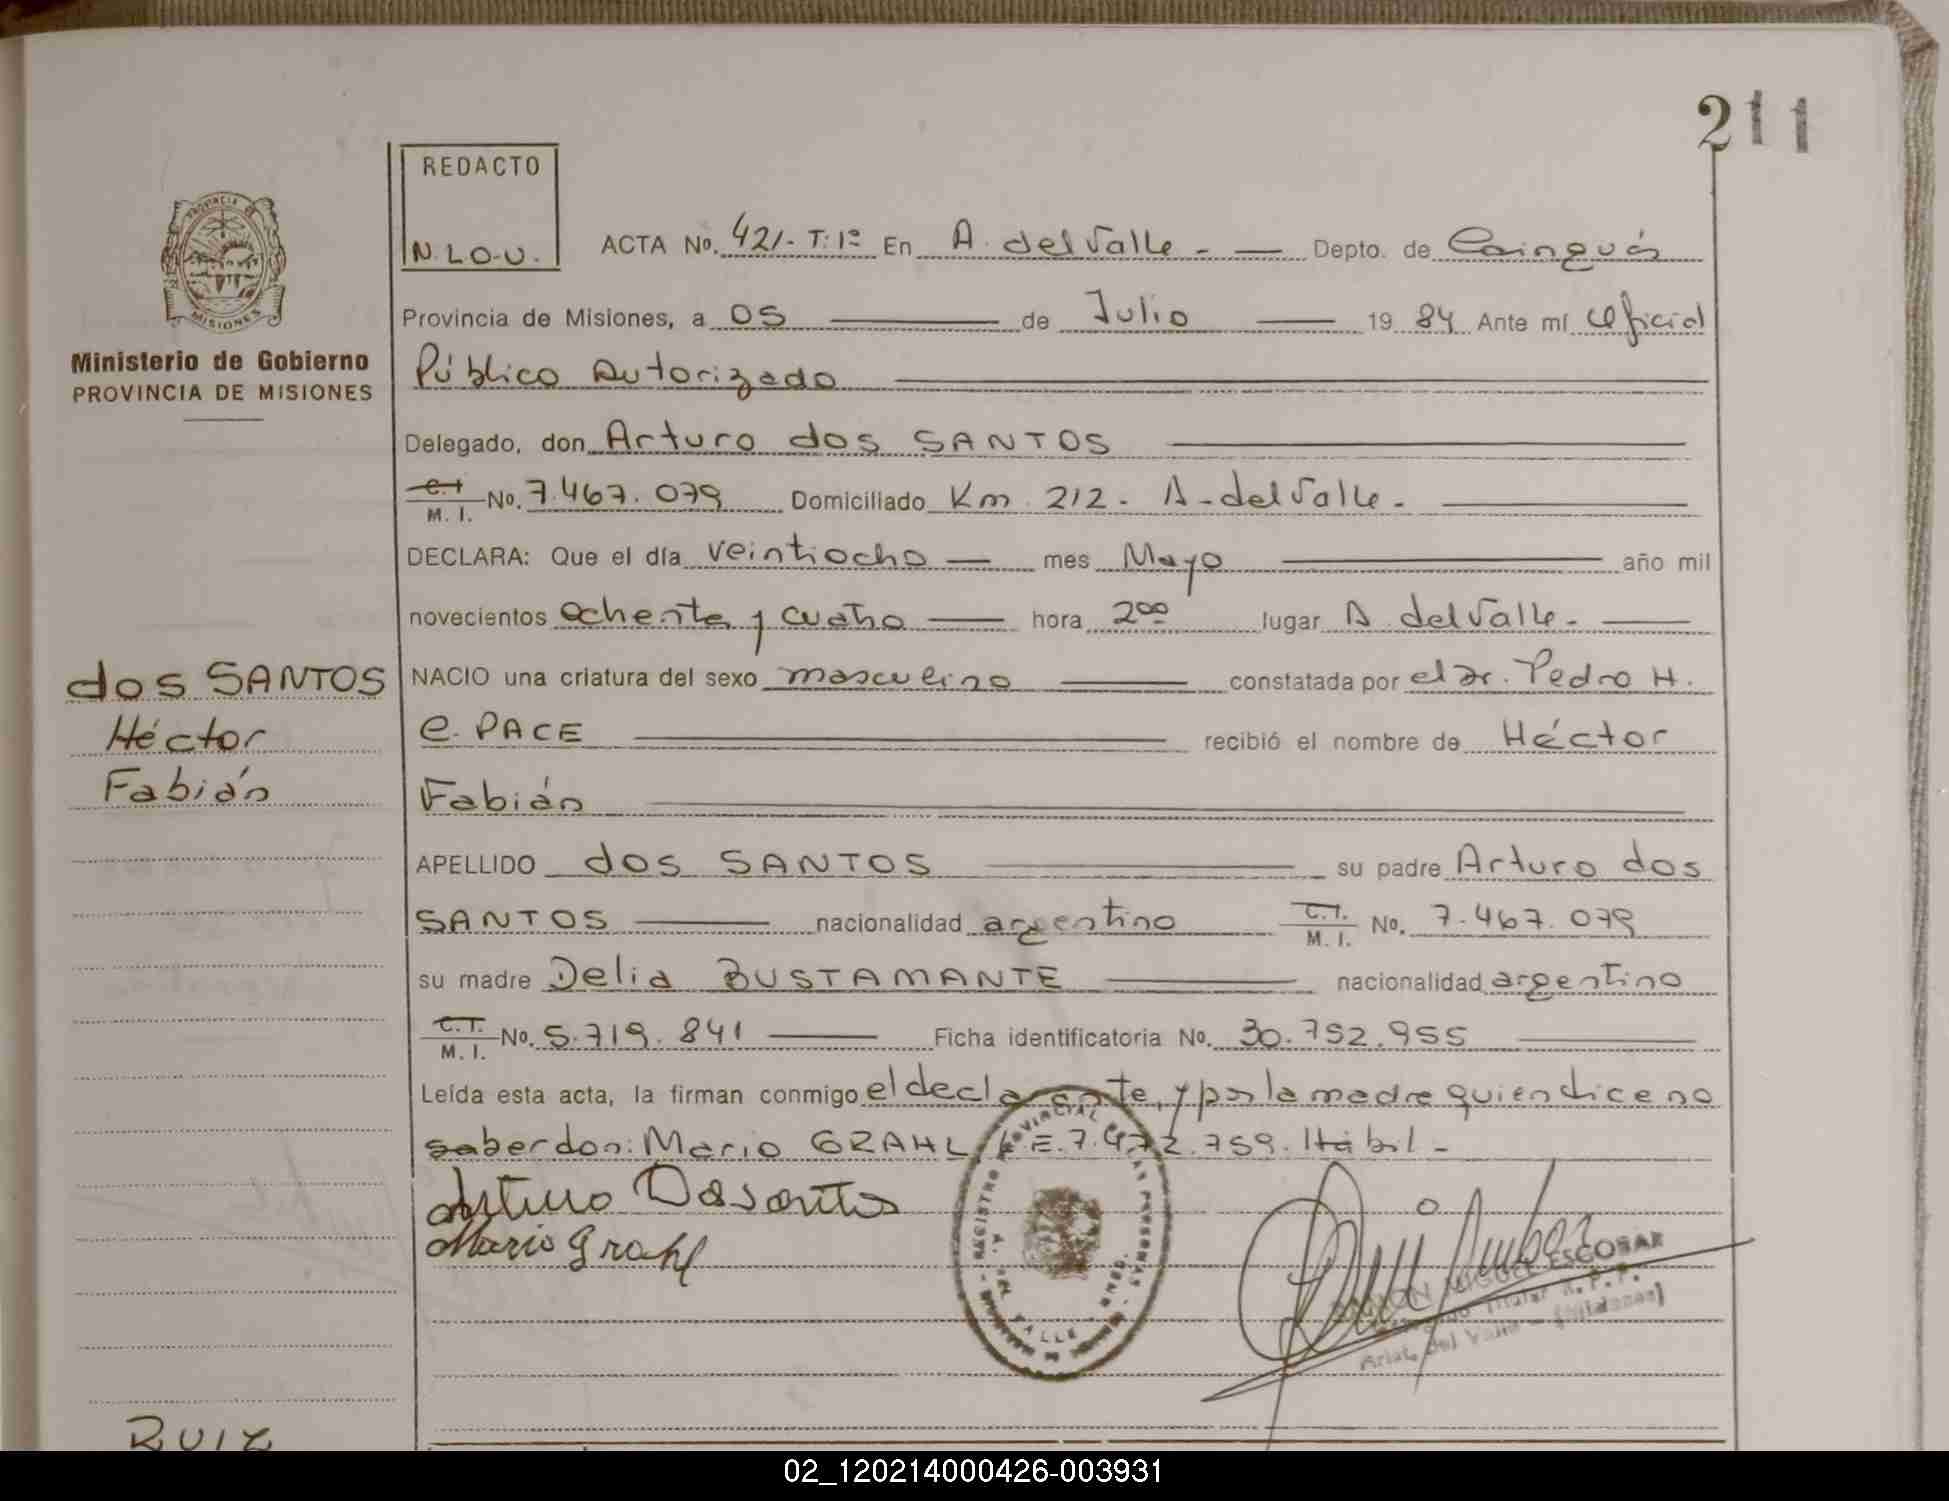 211
REDACTO
N.LO.U.
PROVINCIA DE
MISIONES
Ministerio de Gobierno
PROVINCIA DE MISIONES
ACTA No. 421.- T: 1º En A. del Valle - Depto. de Cainguás
Provincia de Misiones, a 05 de Julio 19 84 Ante mí Oficial
Público Autorizado
Delegado, don Arturo dos SANTOS
C.I M. I. No. 7.467.079 Domiciliado Km. 212 - A. del Valle -
DECLARA: Que el día veintiocho mes Mayo año mil
novecientos ochenta y cuatro hora 2⁰⁰ lugar A. del Valle -
dos SANTOS
Héctor
Fabián
NACIO una criatura del sexo masculino constatada por el Dr. Pedro H.
e. PACE recibió el nombre de Héctor
Fabián
APELLIDO dos SANTOS su padre Arturo dos
SANTOS nacionalidad argentino C.I. M. I. No. 7.467.079
su madre Delia BUSTAMANTE nacionalidad argentino
C.I. M. I. No. 5.719.841 Ficha identificatoria No. 30.752.955
Leída esta acta, la firman conmigo el declarante, y por la madre quien dice no
saber don: Mario GRAHL L.E. 7.472.759. Hábil -
Arturo Dosantos
Mario Grahl
RAMON MIGUEL ESCOBAR
Titular R. P. P.
Arist. del Valle - (Misiones)
RUIZ
02_120214000426-003931